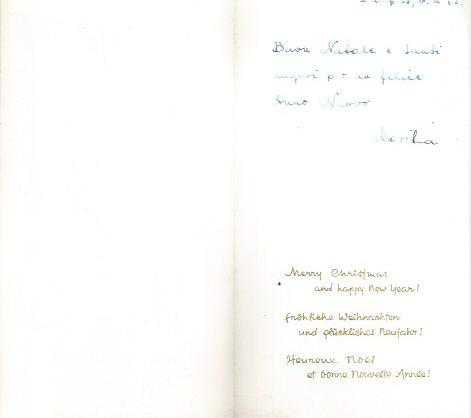 Buon Natale e tanti
auguri per un felice
Anno Nuovo
Merry Christmas
and happy New Year!
Fröhliche Weihnachten
und glückliches Neujahr!
Heureux Noël
et bonne Nouvelle Année!